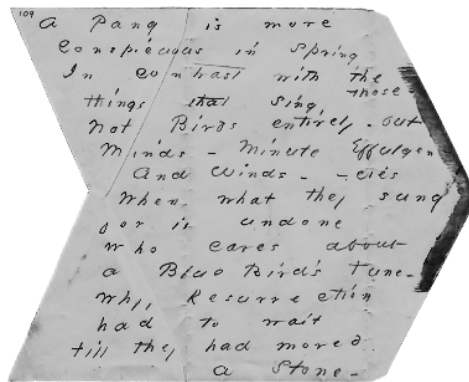 109
A Pang is more
Conspicuous in Spring
In contrast with the
those
things that sing
Not Birds entirely - but
Minds - Minute Effulgen
And Winds - cies
When what they sung
for is undone
Who cares about
a Blue Bird's Tune -
Why, Resurrection
had to wait
till they had moved
a Stone -